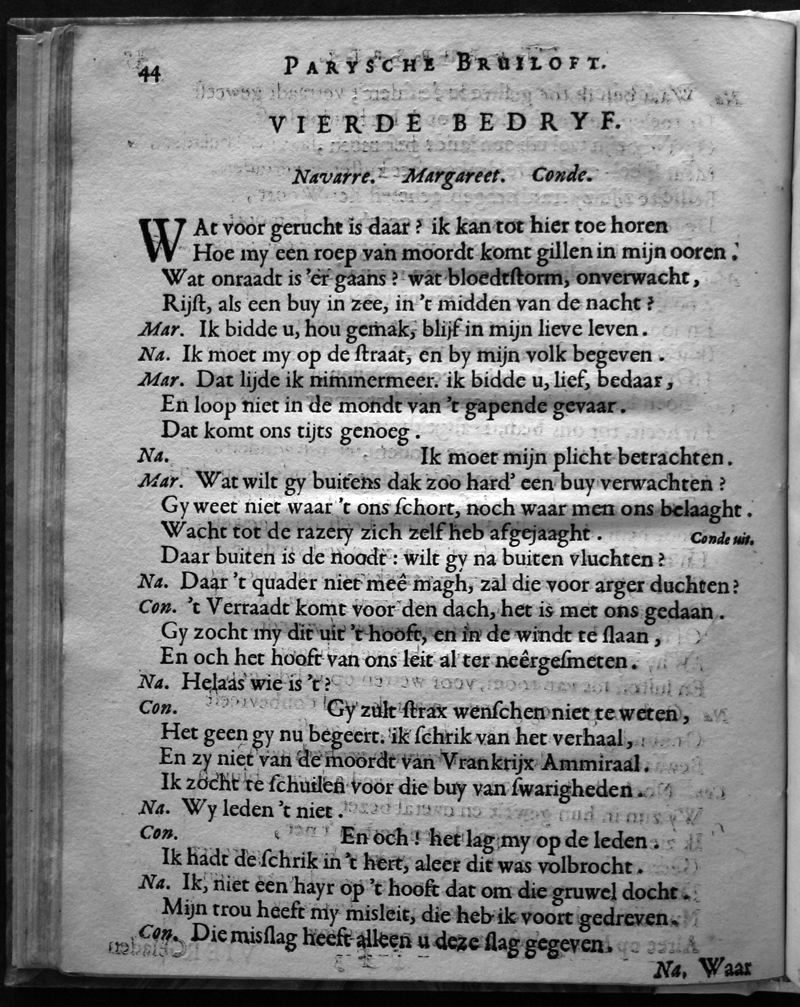 44
PARYSCHE BRUILOFT.
VIERDE BEDRYF.
Navarre. Margareet. Conde.
WAt voor gerucht is daar? ik kan tot hier toe horen
Hoe my een roep van moordt komt gillen in mijn ooren.
Wat onraadt is 'er gaans? wat bloedtſtorm, onverwacht,
Rijſt, als een buy in zee, in 't midden van de nacht?
Mar. Ik bidde u, hou gemak, blijf in mijn lieve leven.
Na. Ik moet my op de ſtraat, en by mijn volk begeven.
Mar. Dat lijde ik nimmermeer. ik bidde u, lief, bedaar,
En loop niet in de mondt van 't gapende gevaar.
Dat komt ons tijts genoeg.
Na. Ik moet mijn plicht betrachten.
Mar. Wat wilt gy buitens dak zoo hard' een buy verwachten?
Gy weet niet waar 't ons ſchort, noch waar men ons belaaght.
Wacht tot de razery zich zelf heb afgejaaght. Conde uit.
Daar buiten is de noodt: wilt gy na buiten vluchten?
Na. Daar 't quader niet meê magh, zal die voor arger duchten?
Con. 't Verraadt komt voor den dach, het is met ons gedaan.
Gy zocht my dit uit 't hooft, en in de windt te ſlaan,
En och het hooft van ons leit al ter neêrgeſmeten.
Na. Helaas wie is 't?
Con. Gy zult ſtrax wenſchen niet te weten,
Het geen gy nu begeert. ik ſchrik van het verhaal,
En zy niet van de moordt van Vrankrijx Ammiraal.
Ik zocht te ſchuilen voor die buy van ſwarigheden.
Na. Wy leden 't niet.
Con. En och! het lag my op de leden.
Ik hadt de ſchrik in 't hert, aleer dit was volbrocht.
Na. Ik, niet een hayr op 't hooft dat om die gruwel docht.
Mijn trou heeft my misleit, die heb ik voort gedreven.
Con. Die misſlag heeft alleen u deze ſlag gegeven.
Na. Waar